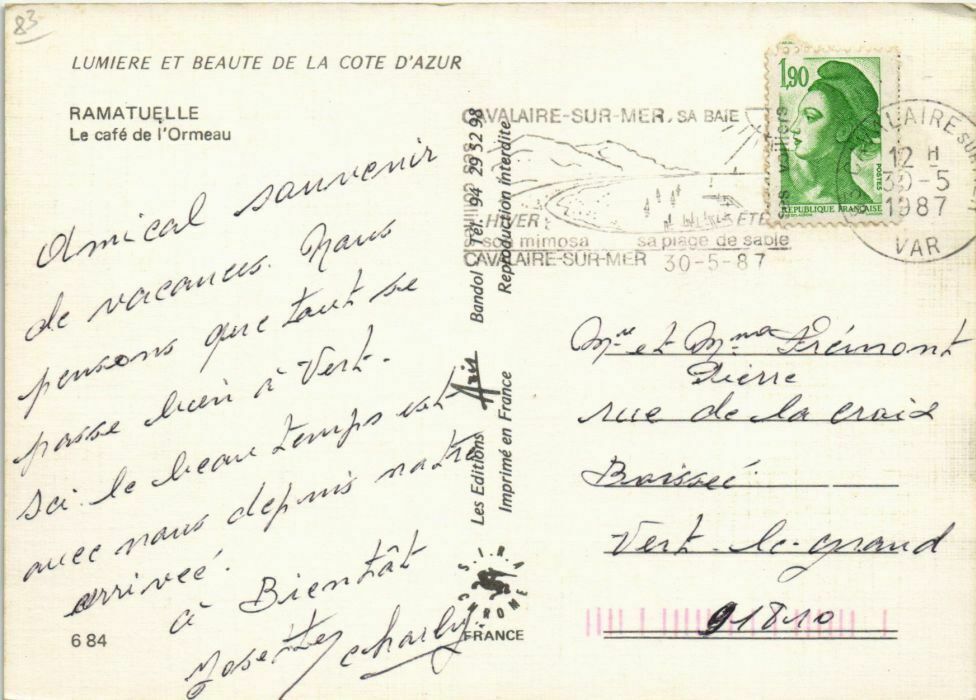 83
LUMIERE ET BEAUTE DE LA COTE D'AZUR
RAMATUELLE
Le café de l'Ormeau
Amical souvenir
de vacances. Nous
pensons que tout se
passe bien à Vert.
Ici le beau temps est
avec nous depuis notre
arrivée.
à Bientôt
Josette Charly
6 84
Les Editions Aris Bandol Tél. 94 29 52 98
Imprimé en France Reproduction interdite
S.I.R.A CHROME
FRANCE
CAVALAIRE-SUR-MER, SA BAIE
HIVER: ÉTÉ
son mimosa sa plage de sable
CAVALAIRE-SUR-MER 30-5-87
1,90
POSTES
REPUBLIQUE FRANÇAISE
CAVALAIRE SUR
12 H
30-5
1987
VAR
Mr et Mme Frémont
Pierre
rue de la croix
Boissée
Vert-le-grand
91810